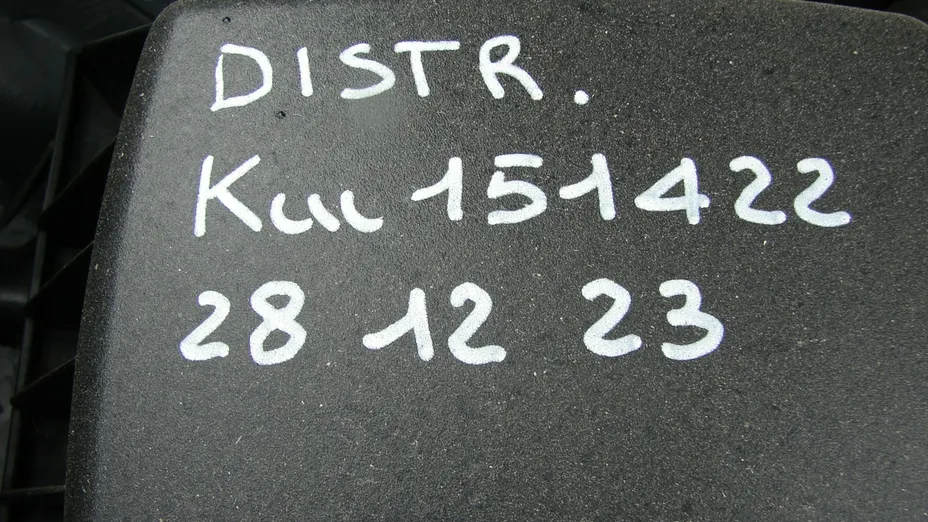 DISTR.
Km 151422
28 12 23